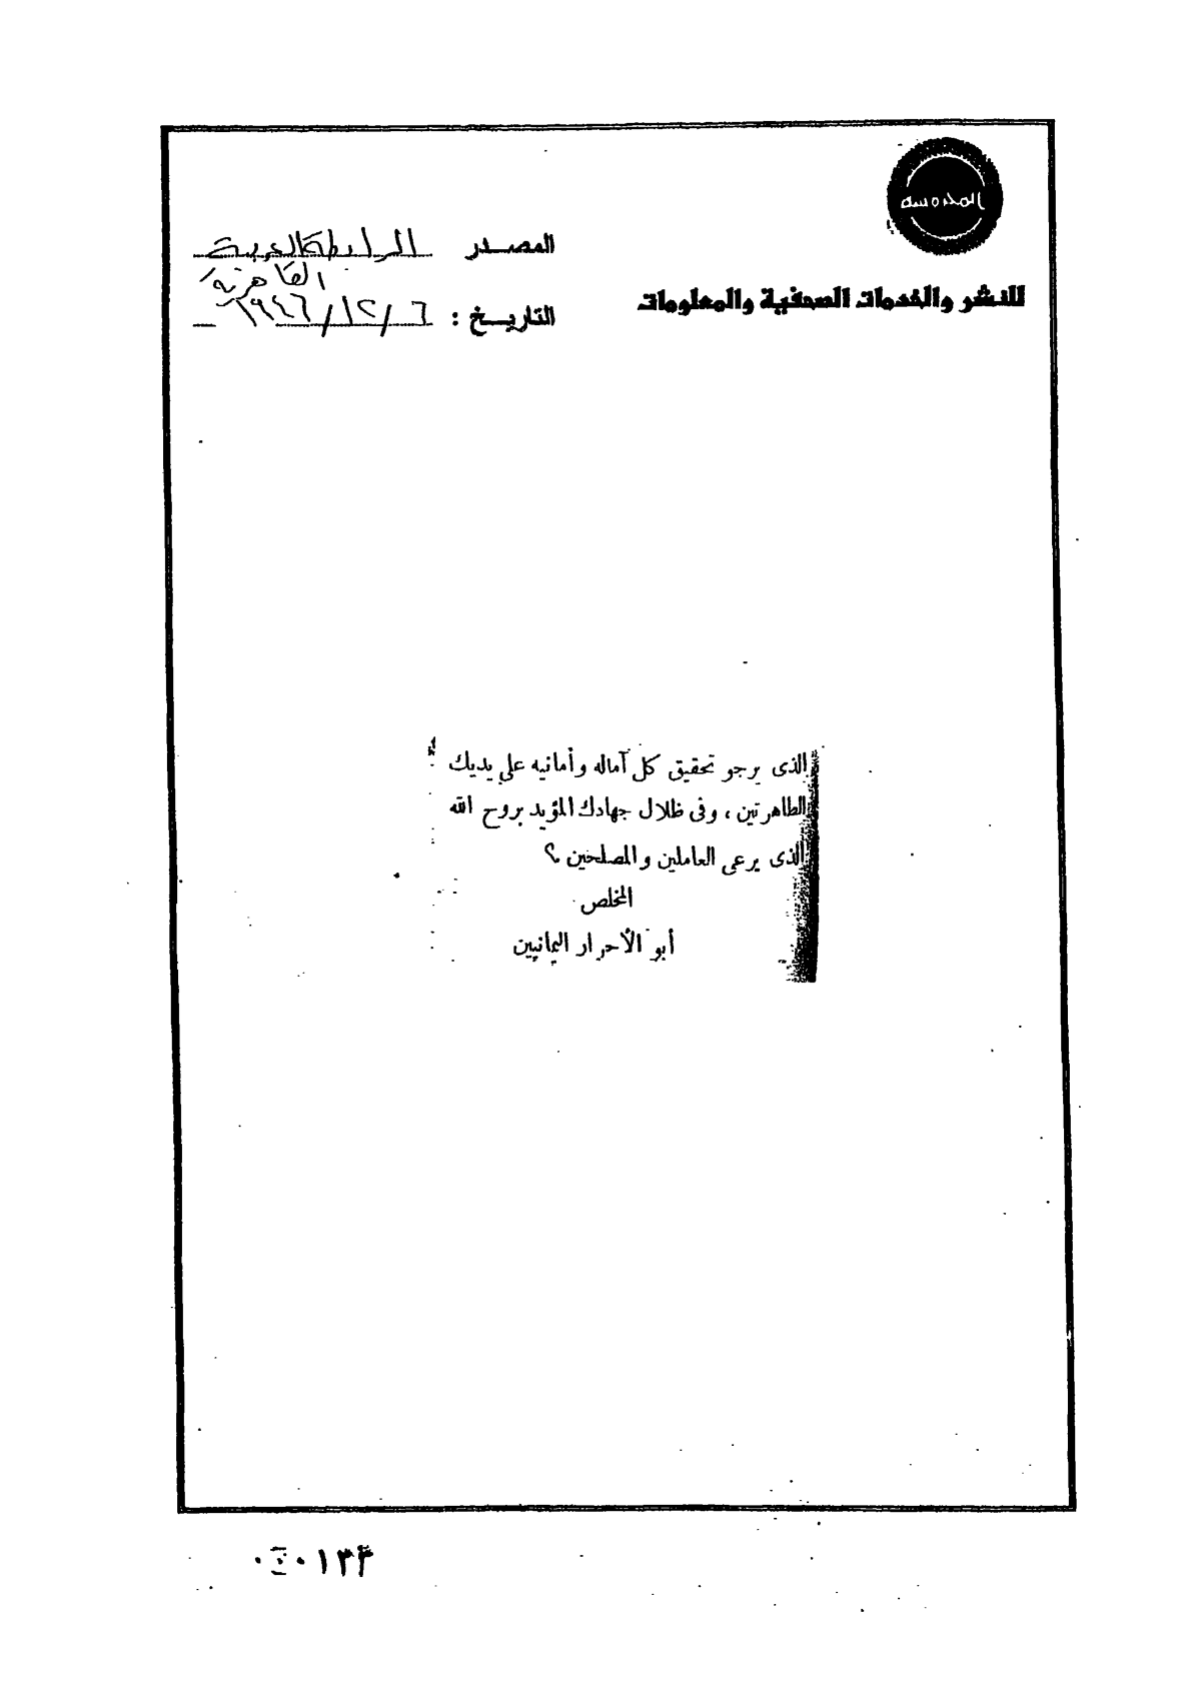 المحروسة
للنشر والخدمات الصحفية والمعلومات
المصدر الرابطة العربية
القاهرية
التاريخ : ٦/١٢/١٩٤٦
الذى يرجو تحقيق كل آماله وأمانيه على يديك
الطاهرتين ، وفى ظلال جهادك المؤيد بروح الله
الذى يرعى العاملين والمصلحين ؟
المخلص
أبو الأحرار اليمانيين